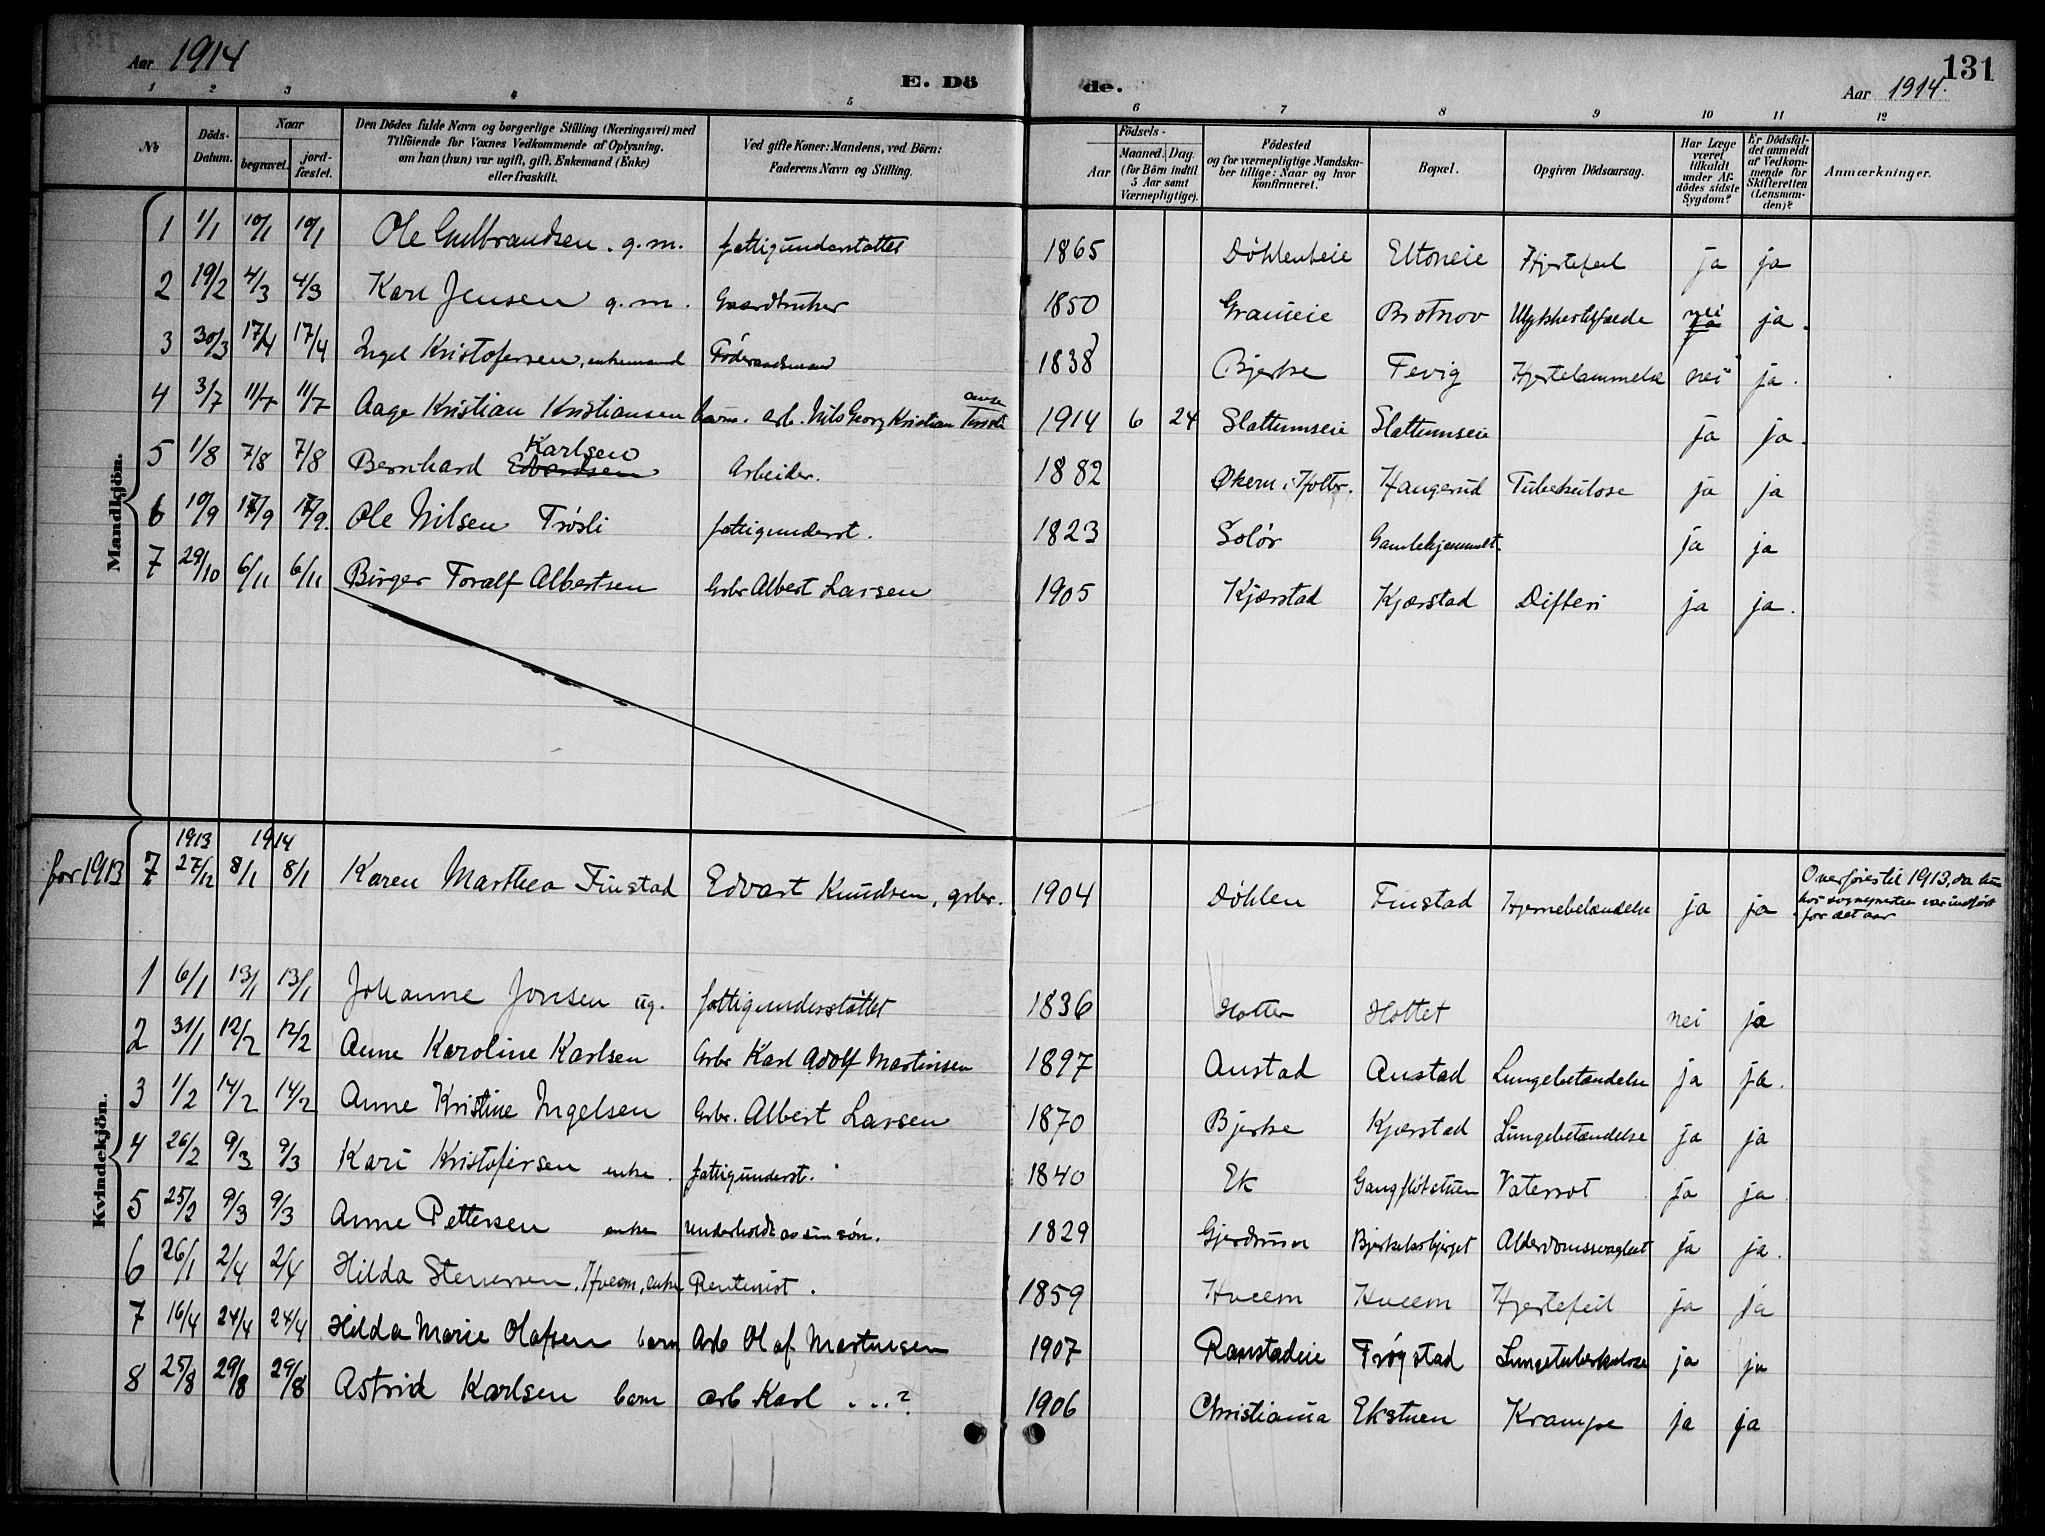 Aar 1914
E. Dö
de.
131
Aar 1914.
1 2 3 4 5 6 7 8 9 10 11 12
No
Döds-Datum.
Naar
begravet.
jord-fæstet.
Den Dödes fulde Navn og borgerlige Stilling (Næringsvei) med
Tilföiende for Voxnes Vedkommende af Oplysning,
om han (hun) var ugift, gift, Enkemand (Enke)
eller fraskilt.
Ved gifte Koner: Mandens, ved Börn:
Faderens Navn og Stilling.
Födsels-
Aar
Maaned. Dag.
(for Börn indtil
5 Aar samt
Værnepligtige).
Födested
og for værnepligtige Mandska-
ber tillige: Naar og hvor
konfirmeret.
Bopæl.
Opgiven Dödsaarsag.
Har Læge
været
tilkaldt
under Af-
dödes sidste
Sygdom?
Er Dödsfal-
det anmeldt
af Vedkom-
mende for
Skifteretten
(Lensman-
den)?
Anmærkninger.
Mandkjön.
1 1/1 10/1 10/1 Ole Gulbrandsen. g.m. fattigunderstøttet 1865 Døhleneie Eltoneie Hjertefeil ja ja
2 19/2 4/3 4/3 Karl Jensen g.m. Gaardbruker 1850 Graneie Brotnov Ulykkestilfælde nei ja ja.
3 30/3 17/4 17/4 Ingel Kristofersen, enkemand Föderaadsmand 1838 Bjerke Tevig Hjertelammelse nei ja.
4 3/7 11/7 11/7 Aage Kristian Kristiansen barn. Arb. Nils Georg Kristian 1914 6 24 Slattumseie Slattumseie ja ja.
Karlsen
5 1/8 7/8 7/8 Bernhard Edvardsen Arbeider. 1882 Økern i Holter. Haugerud Tuberkulose ja ja
6 10/9 17/9 17/9. Ole Nilsen Trøsli fattigunderst. 1823 Solör Gamlehjemmet. ja ja
7 29/10 6/11 6/11 Birger Toralf Albertsen Grbr Albert Larsen 1905 Kjærstad Kjærstad Difteri ja ja.
Kvindekjön.
1913 1914
for 1913 7 27/12 8/1 8/1 Karen Marthea Finstad Edvart Knudsen, grbr. 1904 Døhlen Finstad Hjernebetændelse ja ja Overføres til 1913, da hun
hos sognepresten var indført
for det aar
1 6/1 13/1 13/1 Johanne Jonsen ug. fattigunderstøttet 1836 Holter Holtet nei ja
2 31/1 12/2 12/2 Anne Karoline Karlsen Grbr Karl Adolf Martinsen 1897 Austad Austad Lungebetændelse ja ja.
3 1/2 14/2 14/2 Anne Kristine Ingelsen Grbr. Albert Larsen 1870 Bjerke Kjærstad Lungebetændelse ja ja
4 26/2 9/3 9/3 Kari Kristofersen enke. fattigunderst. 1840 Ek Gangflötstuen Vatersot ja ja
5 25/2 9/3 9/3 Anne Pettersen enke underholdt av sin søn. 1829 Gjerdrum Bjerkelsbjerget Alderdomssvaghet ja ja.
6 26/1 2/4 2/4 Hilda Stenersen, Hveem, enke Rentenist. 1859 Hveem Hveem Hjertefeil ja ja
7 16/4 24/4 24/4 Hilda Marie Olafsen barn Arb Olaf Martinsen 1907 Ranstadeie Frøgstad Lungetuberkulose ja ja
8 25/8 29/8 29/8 Astrid Karlsen barn arb Karl ...? 1906 Christiania Ekstuen Krampe ja ja